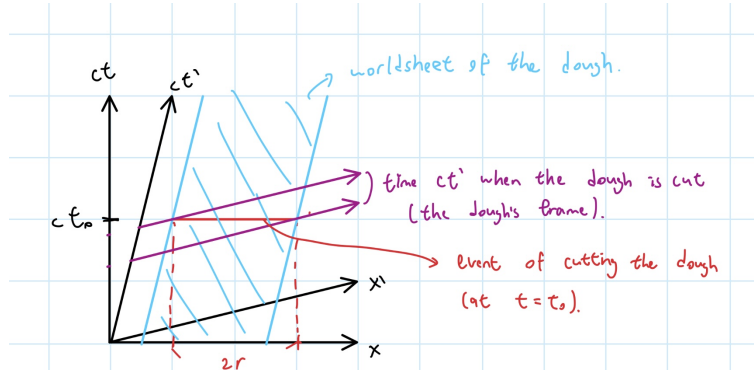 worldsheet of the dough.
ct
ct'
time ct' when the dough is cut
(the dough's frame).
ct₀
event of cutting the dough
(at t = t₀).
x'
x
2r